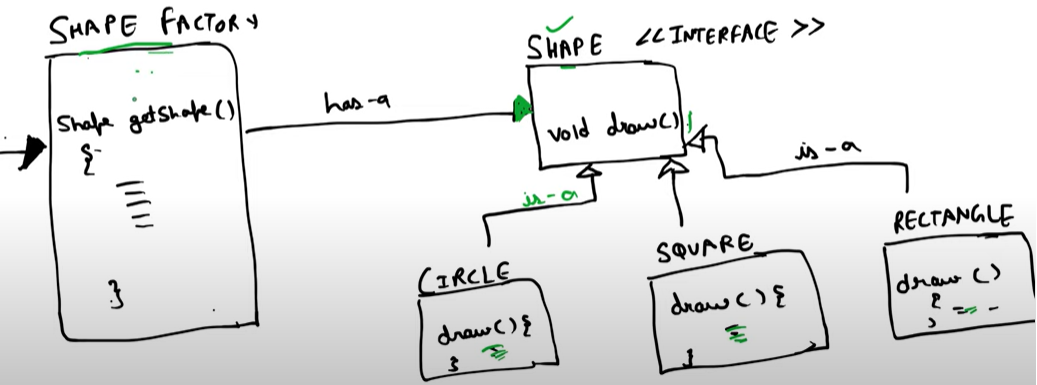 SHAPE FACTORY
Shape getShape()
{
}
has-a
SHAPE <<INTERFACE>>
void draw()
is-a
is-a
CIRCLE
draw(){
}
SQUARE
draw(){
}
RECTANGLE
draw()
{
}